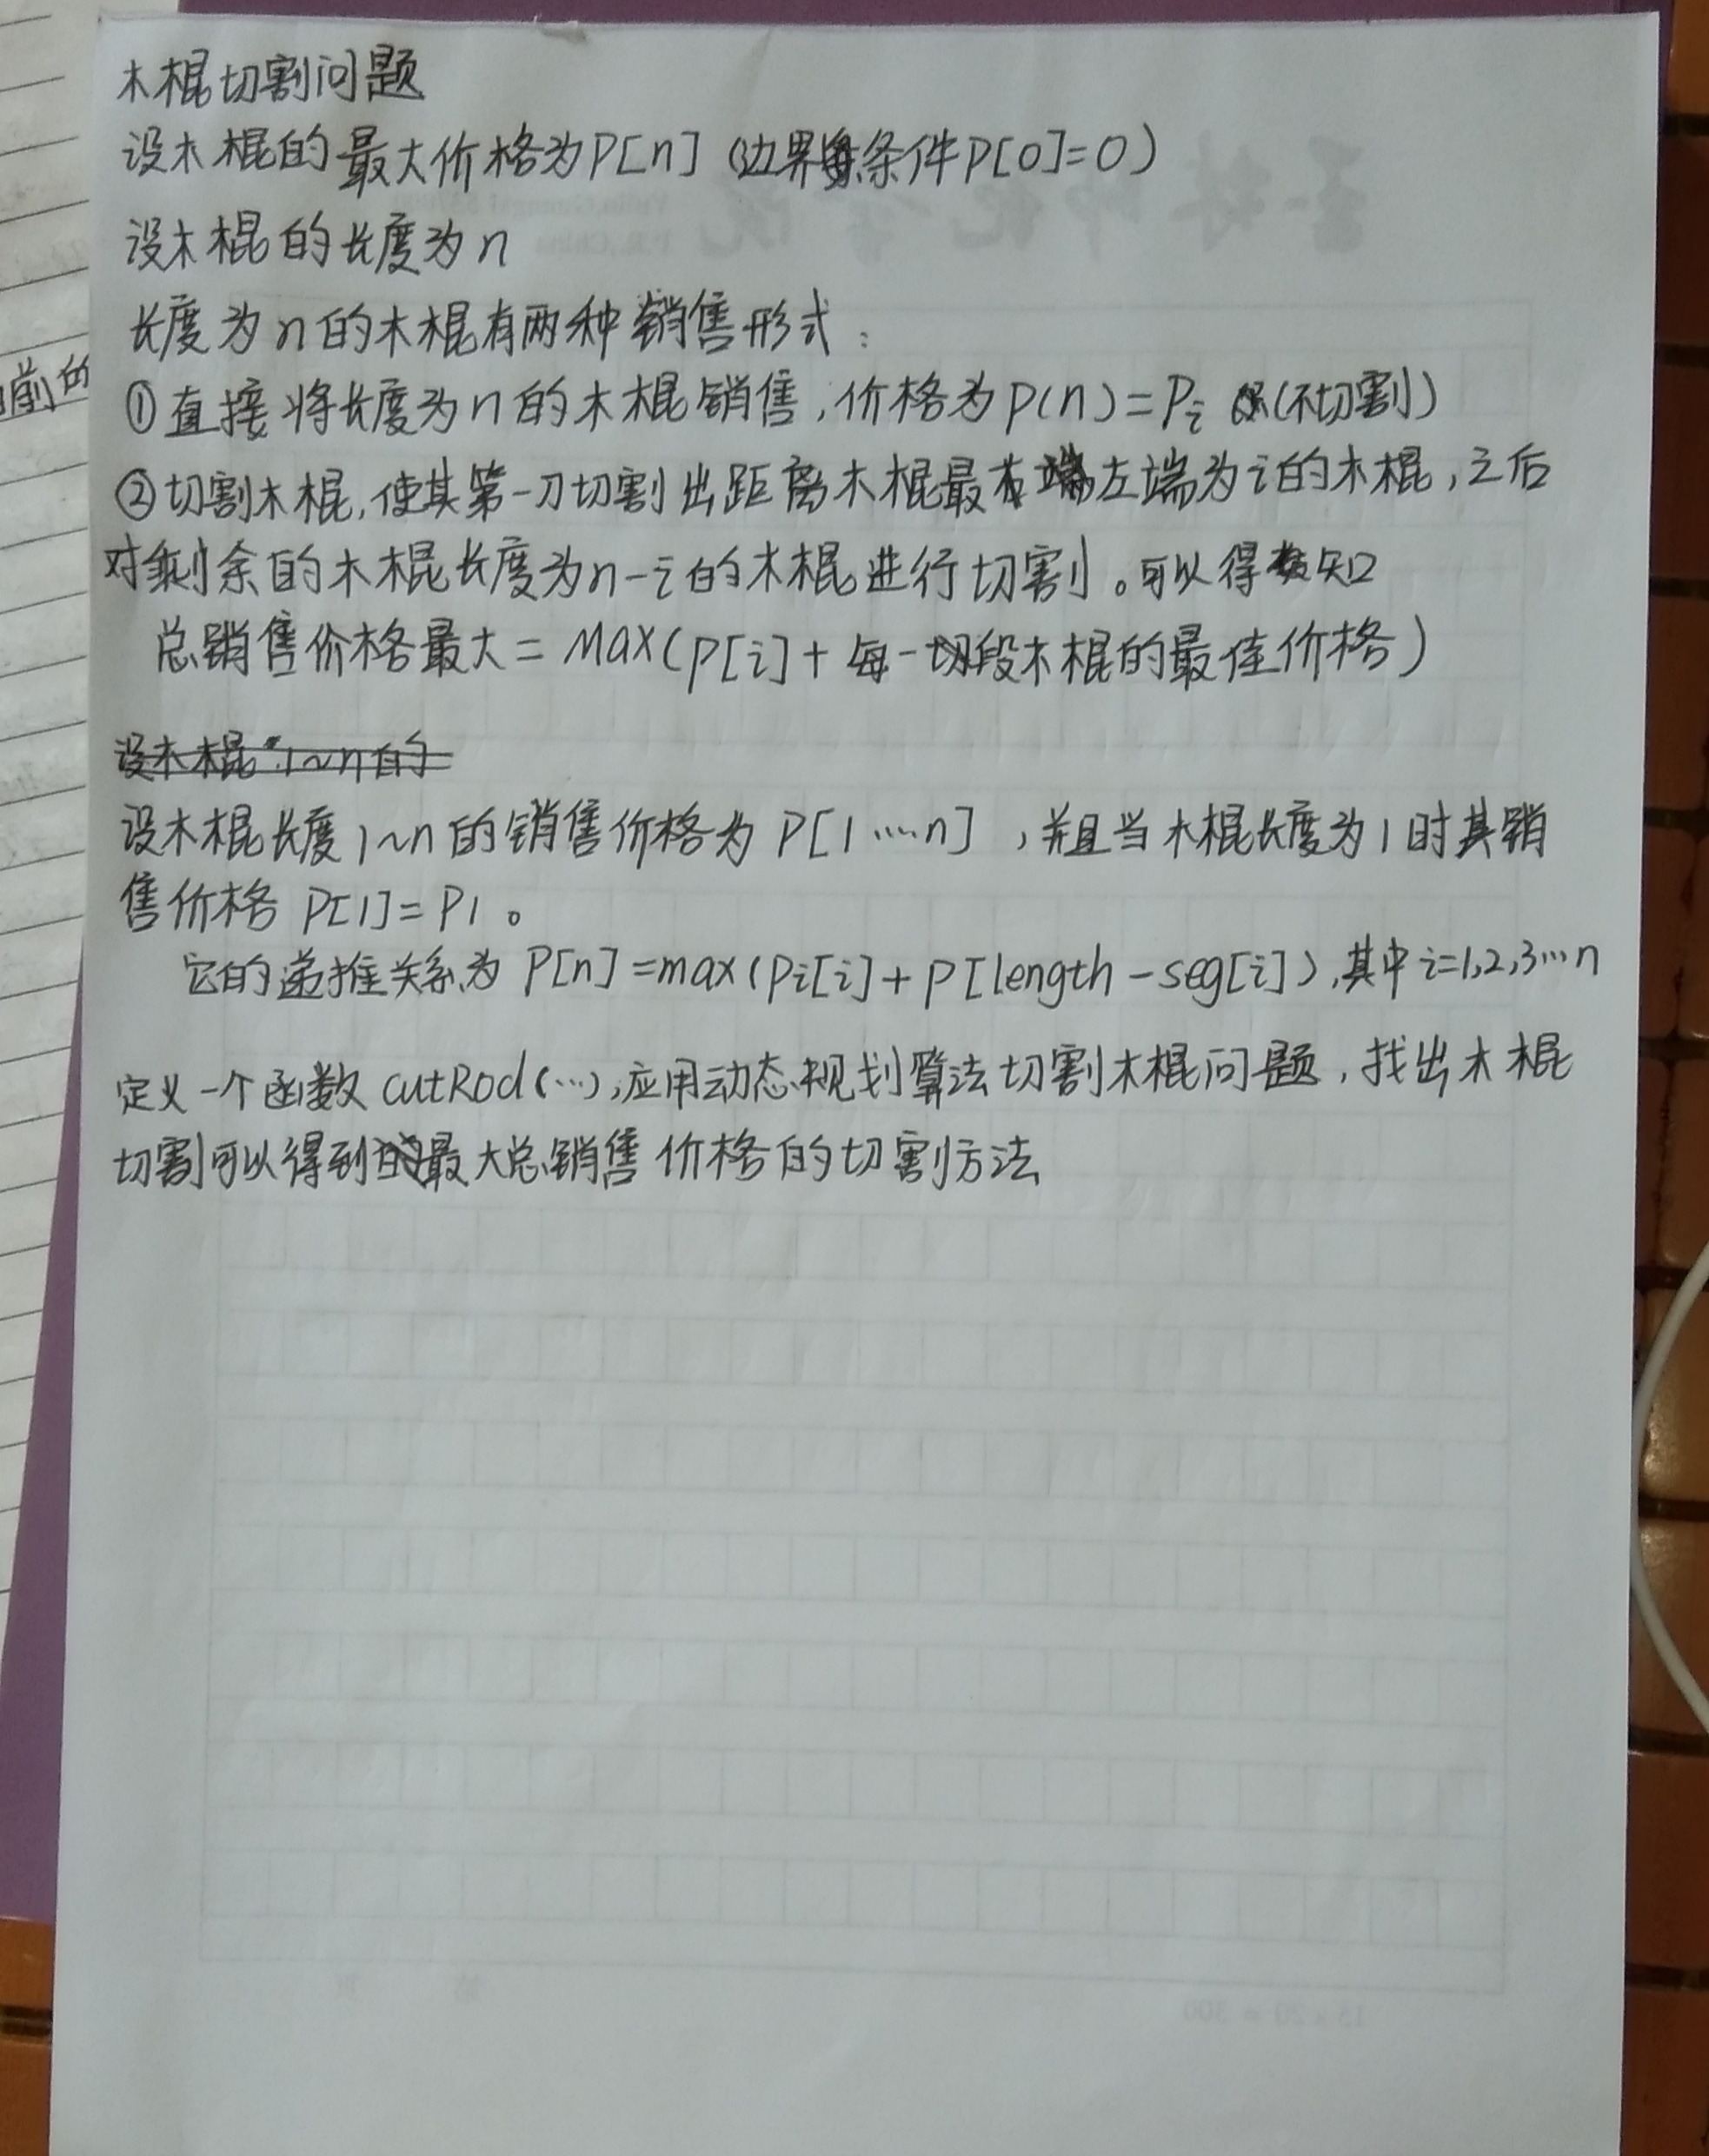 木棍切割问题
设木棍的最大价格为P[n] (边界条件P[0]=0)
设木棍的长度为n
长度为n的木棍有两种销售形式：
①直接将长度为n的木棍销售,价格为p(n)=Pi (不切割)
②切割木棍,使其第一刀切割出距离木棍最左端为i的木棍,之后
对剩余的木棍长度为n-i的木棍进行切割。可以得知
总销售价格最大=Max(P[i]+每一段木棍的最佳价格)
设木棍1~n的
设木棍长度1~n的销售价格为P[1……n],并且当木棍长度为1时其销
售价格P[1]=P1。
它的递推关系为P[n]=max(Pi[i]+P[length-seg[i]),其中i=1,2,3…n
定义一个函数cutRod(…),应用动态规划算法切割木棍问题,找出木棍
切割可以得到最大总销售价格的切割方法
前的
15×20=300